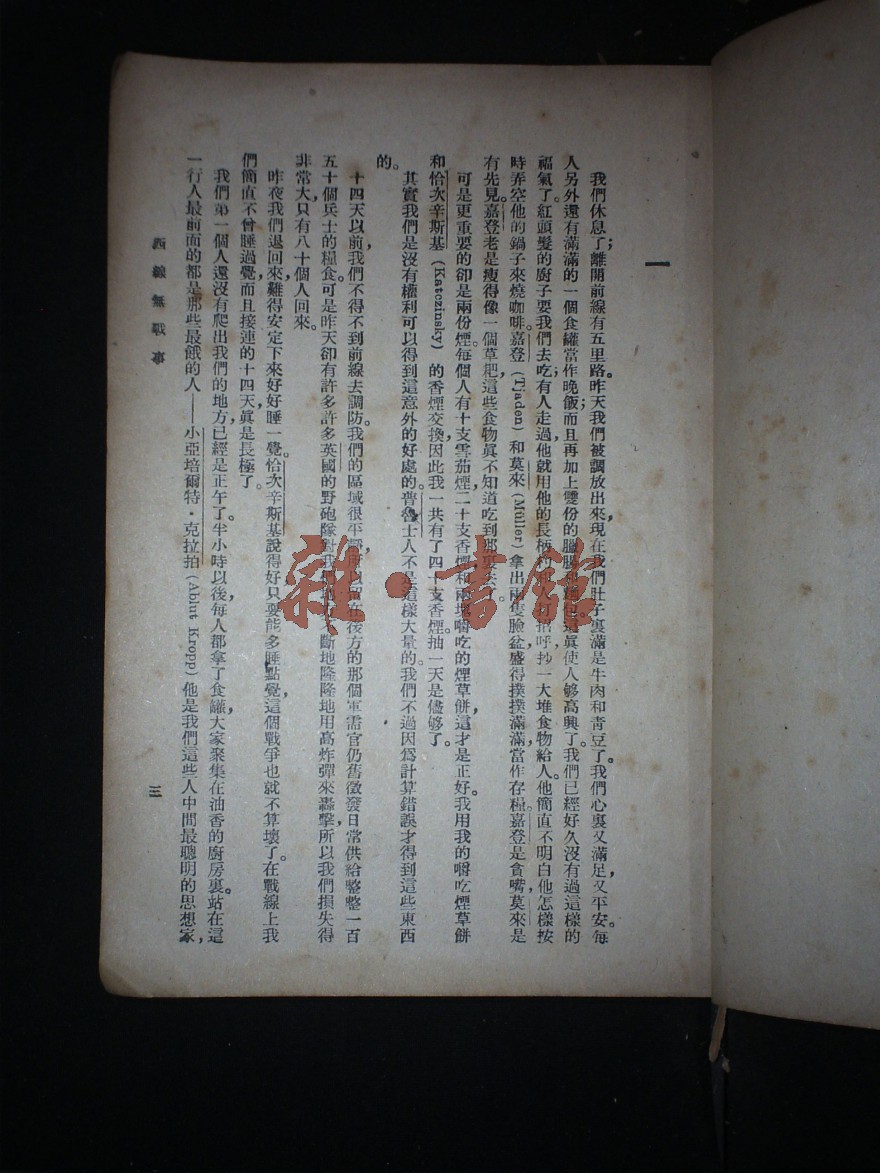 一
我們休息了;離開前線有五里路。昨天我們被調放出來,現在我們肚子裏滿是牛肉和青豆了。我們心裏又滿足,又平安。每
人另外還有滿滿的一個食罐當作晚飯;而且再加上雙份的臘腸和麵包。這真使人够高興了。我們已經好久沒有過這樣的
福氣了。紅頭髮的廚子要我們去吃;有人走過,他就用他的長柄杓和他打招呼,抄一大堆食物給人。他簡直不明白他怎樣按
時弄空他的鍋子來燒咖啡。嘉登(Tjaden)和莫來(Müller)拿出兩隻臉盆,盛得撲撲滿滿,當作存糧。嘉登是貪嘴,莫來是
有先見。嘉登老是瘦得像一個草耙,這些食物真不知道吃到那裏去了。
可是更重要的卻是兩份煙。每個人有十支雪茄煙,二十支香煙和兩塊嚼吃的煙草餅,這才是正好。我用我的嚼吃煙草餅
和恰次辛斯基(Katczinsky)的香煙交換,因此我一共有了四十支香煙。抽一天是儘够了。
其實我們是沒有權利可以得到這意外的好處的。普魯士人不是這樣大量的。我們不過因爲計算錯誤才得到這些東西
的。
十四天以前,我們不得不到前線去調防。我們的區域很平靜,所以留在後方的那個軍需官仍舊徵發日常供給整整一百
五十個兵士的糧食。可是昨天卻有許多許多英國的野砲隊對我們地不斷地隆隆地用高炸彈來轟擊,所以我們損失得
非常大,只有八十個人回來。
昨夜我們退回來,難得安定下來好好睡一覺。恰次辛斯基說得好,只要能多睡點覺,這個戰爭也就不算壞了。在戰線上我
們簡直不曾睡過覺,而且接連的十四天,眞是長極了。
我們第一個人還沒有爬出我們的地方,已經是正午了。半小時以後,每人都拿了食罐,大家聚集在油香的廚房裏。站在這
一行人最前面的都是那些最餓的人——小亞培爾特·克拉拍(Ablut Kropp)他是我們這些人中間最聰明的思想家,
西線無戰事
三
雜·書館